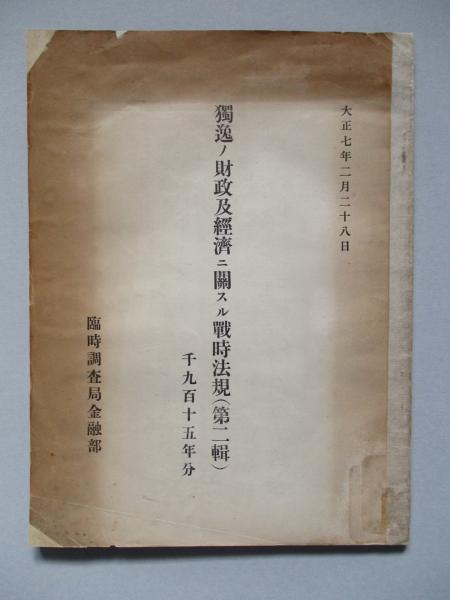 大正七年二月二十八日
獨逸ノ財政及經濟ニ關スル戰時法規(第二輯)
千九百十五年分
臨時調査局金融部